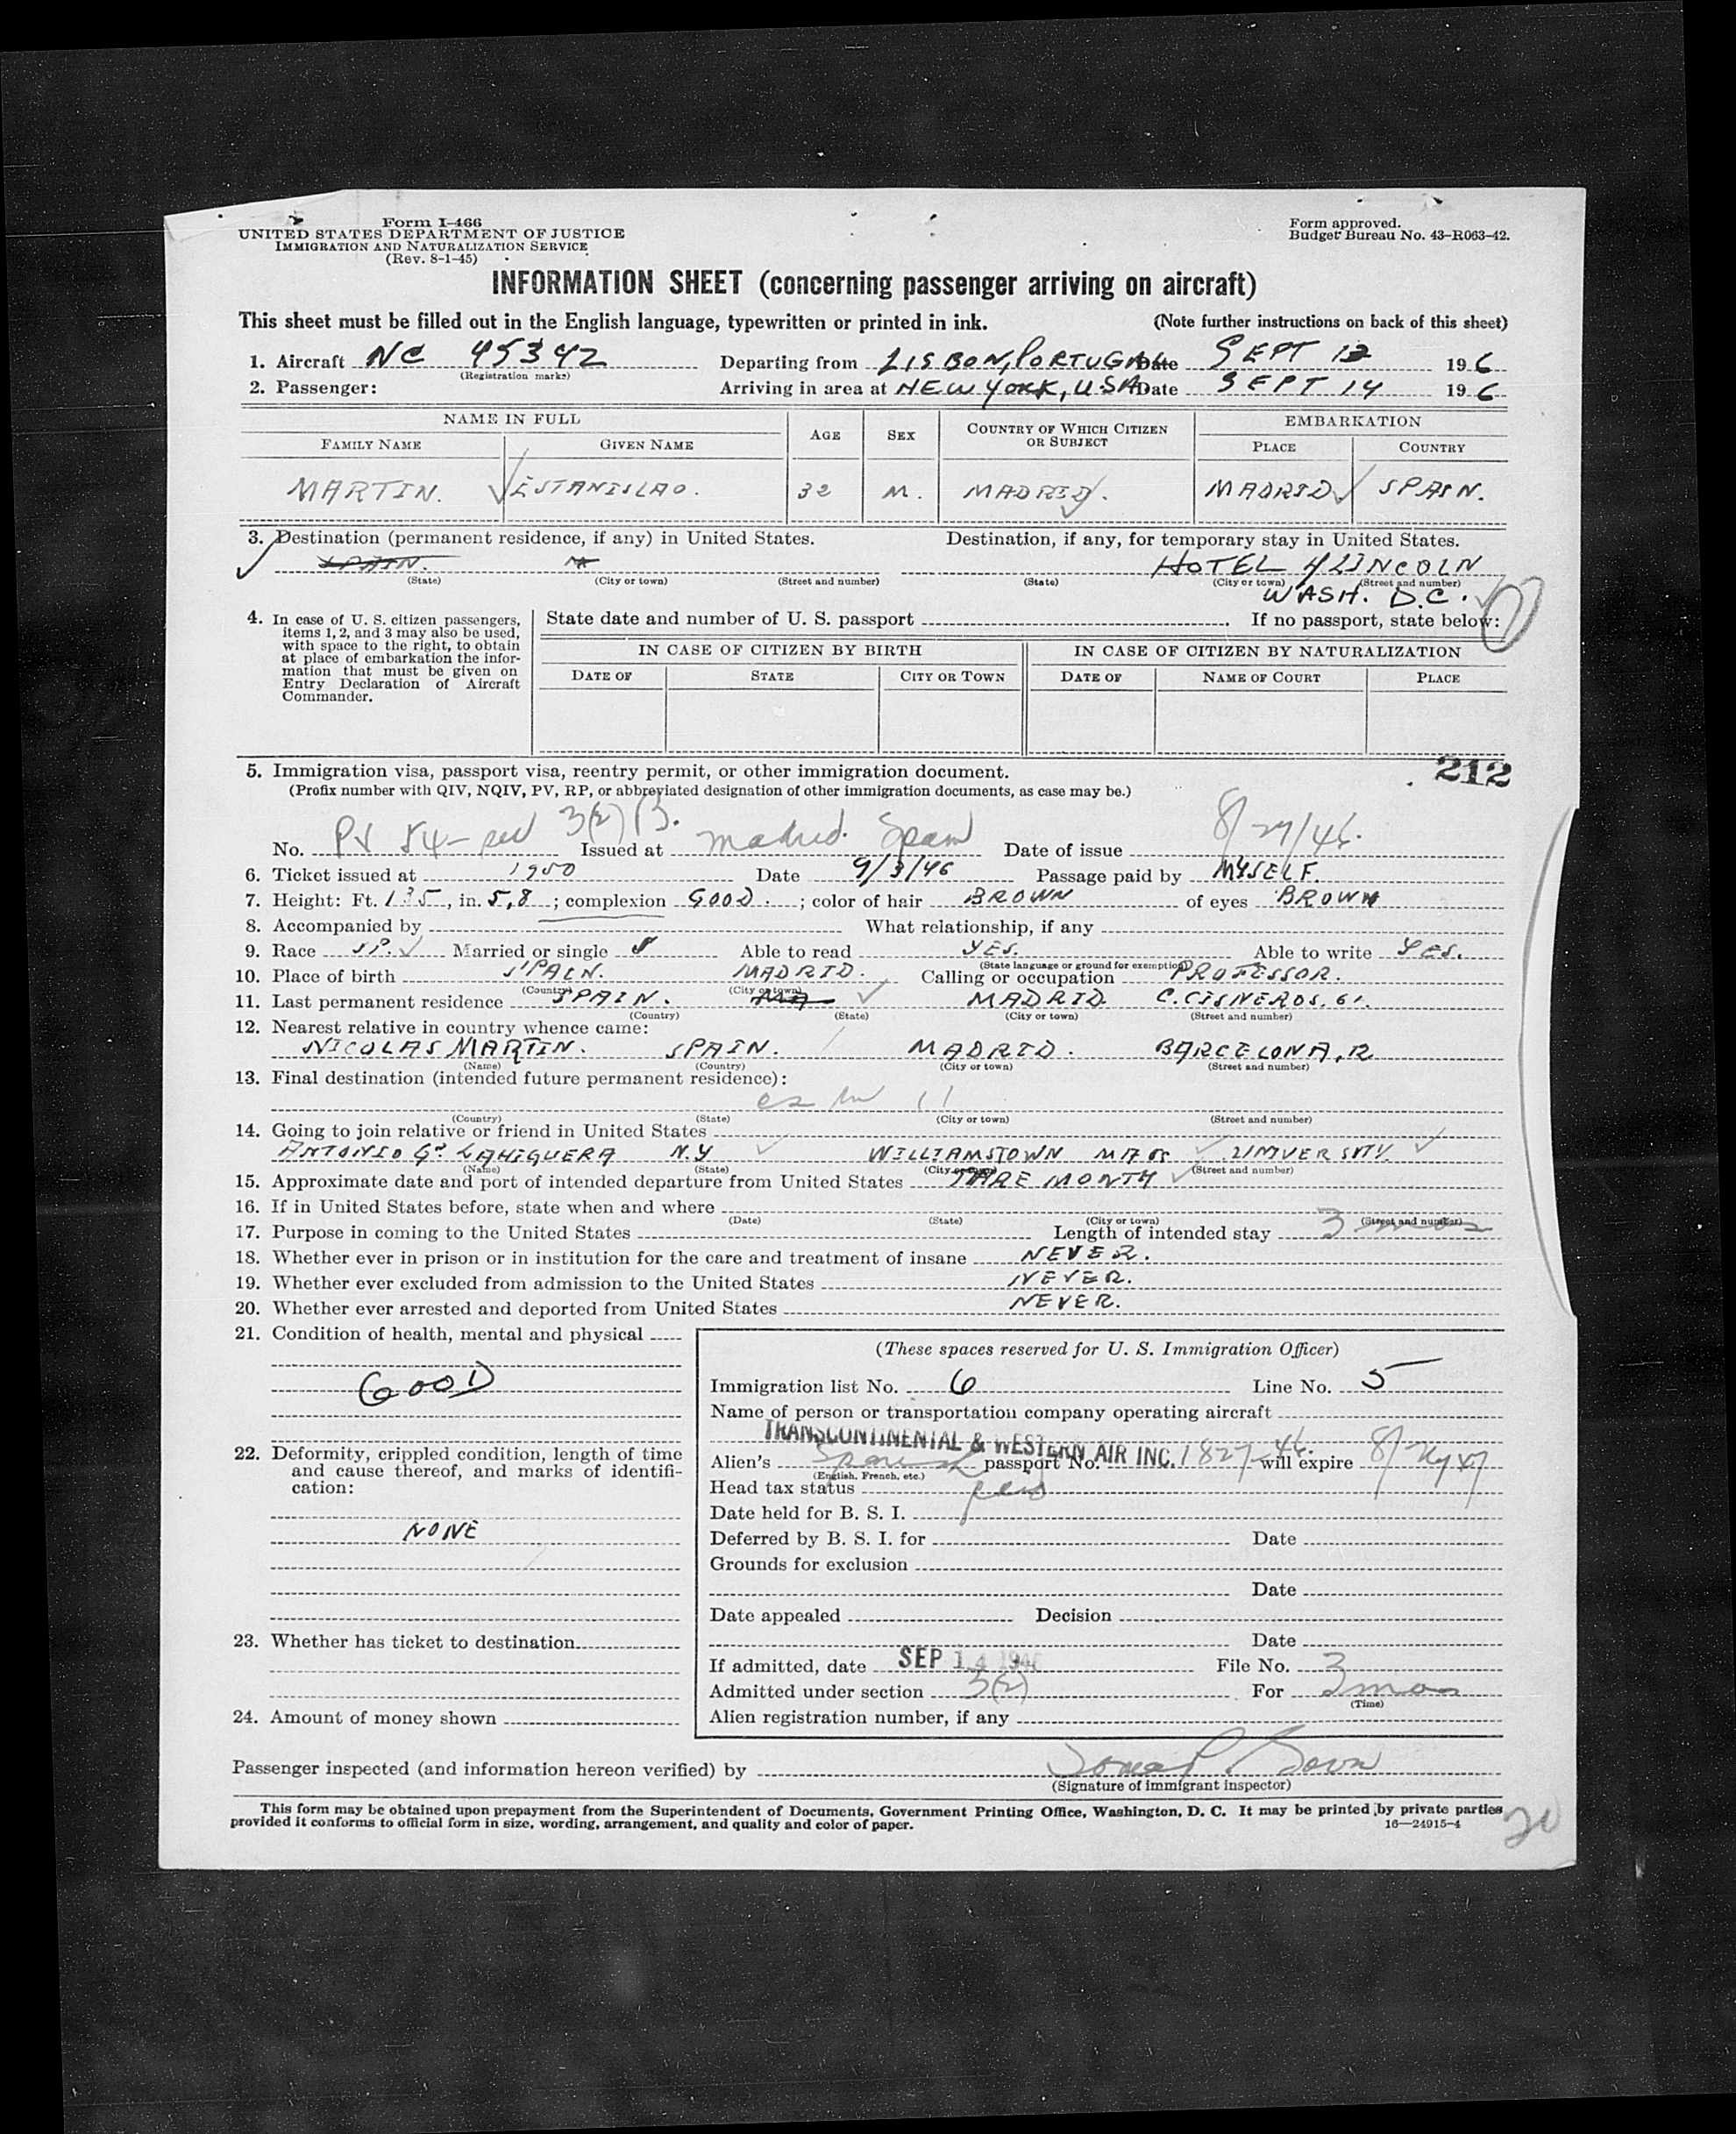 Form I-466
UNITED STATES DEPARTMENT OF JUSTICE
IMMIGRATION AND NATURALIZATION SERVICE
(Rev. 8-1-45)
Form approved.
Budget Bureau No. 43-R063-42.
INFORMATION SHEET (concerning passenger arriving on aircraft)
This sheet must be filled out in the English language, typewritten or printed in ink. (Note further instructions on back of this sheet)
1. Aircraft NC 45342 Departing from LISBON, PORTUGAL Date SEPT 12 19 6
(Registration marks)
2. Passenger: Arriving in area at NEW YORK, USA Date SEPT 14 19 6
NAME IN FULL AGE SEX COUNTRY OF WHICH CITIZEN OR SUBJECT EMBARKATION
FAMILY NAME GIVEN NAME PLACE COUNTRY
MARTIN. ESTANISLAO. 32 M. MADRID. MADRID SPAIN.
3. Destination (permanent residence, if any) in United States. Destination, if any, for temporary stay in United States.
SPAIN. HOTEL LINCOLN
(State) (City or town) (Street and number) (State) (City or town) (Street and number)
WASH. D.C.
4. In case of U. S. citizen passengers, items 1, 2, and 3 may also be used, with space to the right, to obtain at place of embarkation the information that must be given on Entry Declaration of Aircraft Commander.
State date and number of U. S. passport If no passport, state below:
IN CASE OF CITIZEN BY BIRTH IN CASE OF CITIZEN BY NATURALIZATION
DATE OF STATE CITY OR TOWN DATE OF NAME OF COURT PLACE
212
5. Immigration visa, passport visa, reentry permit, or other immigration document.
(Prefix number with QIV, NQIV, PV, RP, or abbreviated designation of other immigration documents, as case may be.)
No. PV 54- 3(2) Issued at Madrid. Spain Date of issue 8/27/46.
6. Ticket issued at 1950 Date 9/3/46 Passage paid by MYSELF.
7. Height: Ft. 135, in. 5,8; complexion GOOD.; color of hair BROWN of eyes BROWN
8. Accompanied by What relationship, if any
9. Race SP. Married or single S Able to read YES. Able to write YES.
(State language or ground for exemption)
10. Place of birth SPAIN. MADRID. Calling or occupation PROFESSOR.
(Country) (City or town)
11. Last permanent residence SPAIN. MADRID C. CISNEROS. 61.
(Country) (State) (City or town) (Street and number)
12. Nearest relative in country whence came:
NICOLAS MARTIN. SPAIN. MADRID. BARCELONA, 12
(Name) (Country) (City or town) (Street and number)
13. Final destination (intended future permanent residence):
(Country) (State) (City or town) (Street and number)
14. Going to join relative or friend in United States
ANTONIO Gª LAHIGUERA N.Y WILLIAMSTOWN MASS UNIVERSITY.
(Name) (State) (City or town) (Street and number)
15. Approximate date and port of intended departure from United States THRE MONTH
16. If in United States before, state when and where
(Date) (State) (City or town) (Street and number)
17. Purpose in coming to the United States Length of intended stay 3 mos
18. Whether ever in prison or in institution for the care and treatment of insane NEVER.
19. Whether ever excluded from admission to the United States NEVER.
20. Whether ever arrested and deported from United States NEVER.
21. Condition of health, mental and physical
GOOD
22. Deformity, crippled condition, length of time and cause thereof, and marks of identification:
NONE
23. Whether has ticket to destination
24. Amount of money shown
(These spaces reserved for U. S. Immigration Officer)
Immigration list No. 6 Line No. 5
Name of person or transportation company operating aircraft
TRANSCONTINENTAL & WESTERN AIR INC.
Alien's Spanish passport No. 1827-46. will expire
(English, French, etc.)
Head tax status
Date held for B. S. I.
Deferred by B. S. I. for Date
Grounds for exclusion
Date
Date appealed Decision
Date
If admitted, date SEP 14 1946 File No.
Admitted under section 3(2) For 3 mos
(Time)
Alien registration number, if any
Passenger inspected (and information hereon verified) by
(Signature of immigrant inspector)
This form may be obtained upon prepayment from the Superintendent of Documents, Government Printing Office, Washington, D. C. It may be printed by private parties
provided it conforms to official form in size, wording, arrangement, and quality and color of paper. 16—24915-4
20